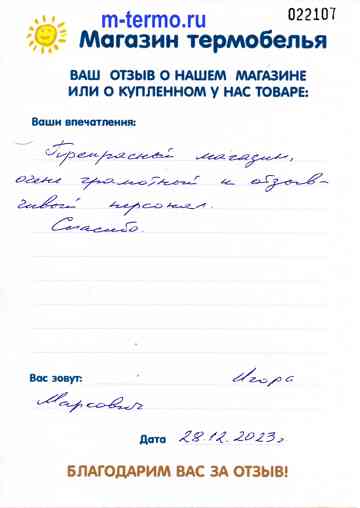 m-termo.ru
022107
Магазин термобелья
ВАШ ОТЗЫВ О НАШЕМ МАГАЗИНЕ
ИЛИ О КУПЛЕННОМ У НАС ТОВАРЕ:
Ваши впечатления:
Прекрасный магазин,
очень грамотный и отзыв-
чивый персонал.
Спасибо.
Вас зовут:
Игорь
Марсович
Дата 28.12.2023г
БЛАГОДАРИМ ВАС ЗА ОТЗЫВ!